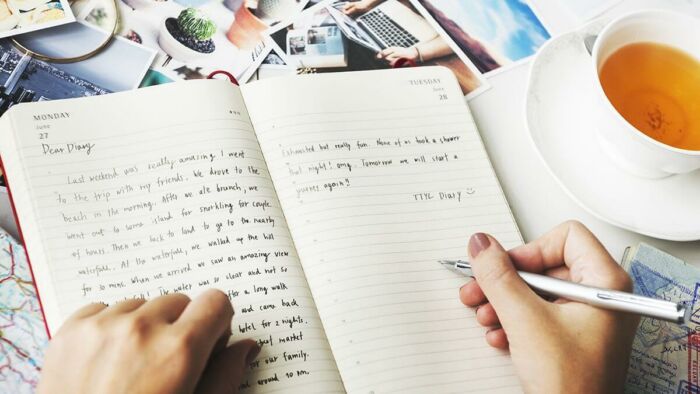 MONDAY
June
27
Dear Diary
Last weekend was really amazing I went
to the trip with my friends. We drove to the
beach in the morning. After we ate brunch, we
went out to some island for snorkling for couple
of hours. Then we back to land to go to the nearby
waterfall. At the waterfall, we walked up the hill
for 30 mins. When we arrived we saw an amazing view
of the waterfall. The water was so clear and not so
after a long walk
and came back
hotel for 2 nights.
market
for our family.
around 10 pm.
TUESDAY
June
28
Exhausted but really fun. None of us took a shower
that night! omg. Tomorrow we will start a
journey again!
TTYL Diary